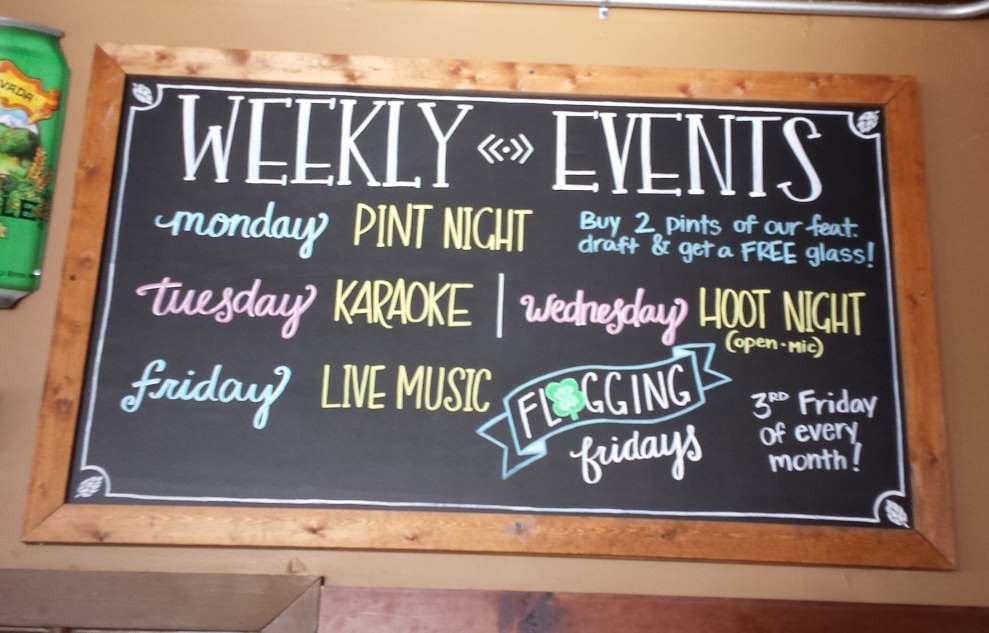 WEEKLY EVENTS
monday PINT NIGHT
Buy 2 pints of our feat.
draft & get a FREE glass!
tuesday KARAOKE | wednesday HOOT NIGHT
(open·mic)
friday LIVE MUSIC
FLOGGING
fridays
3RD Friday
of every
month!